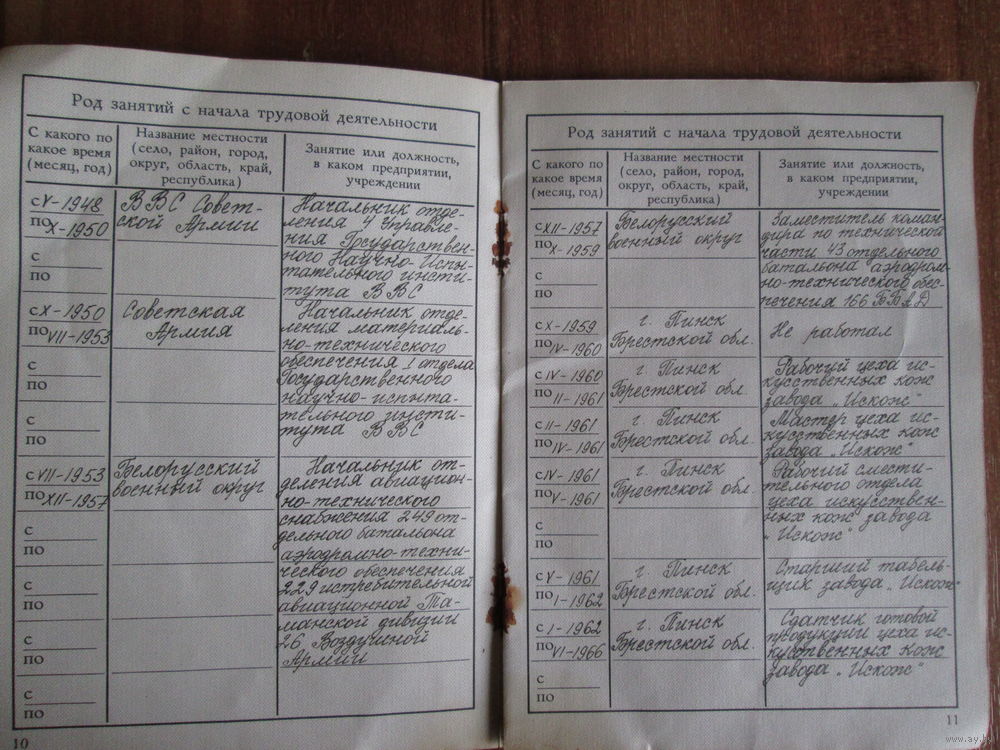 Род занятий с начала трудовой деятельности
С какого по
какое время
(месяц, год)
Название местности
(село, район, город,
округ, область, край,
республика)
Занятие или должность,
в каком предприятии,
учреждении
с V-1948
по X-1950
ВВС Совет-
ской Армии
Начальник отде-
ления 4 Управле-
ния Государствен-
ного Научно-Испы-
тательного инсти-
тута ВВС
с
по
с X-1950
по VII-1953
Советская
Армия
Начальник отде-
ления материаль-
но-технического
обеспечения 1 отдела
Государственного
научно-испыта-
тельного инсти-
тута ВВС
с
по
с
по
с VII-1953
по XII-1957
Белорусский
военный округ
Начальник от-
деления авиацион-
но-технического
снабжения 249 от-
дельного батальона
аэродромно-техни-
ческого обеспечения
229 истребительной
авиационной Та-
манской дивизии
26 Воздушной
Армии
с
по
с
по
с
по
с
по
10
Род занятий с начала трудовой деятельности
С какого по
какое время
(месяц, год)
Название местности
(село, район, город,
округ, область, край,
республика)
Занятие или должность,
в каком предприятии,
учреждении
с XII-1957
по X-1959
Белорусский
военный округ
Заместитель коман-
дира по технической
части 43 отдельного
батальона аэродром-
но-технического обес-
печения 166 БВАД
с
по
с X-1959
по IV-1960
г. Пинск
Брестской обл.
Не работал
с IV-1960
по II-1961
г. Пинск
Брестской обл.
Рабочий цеха ис-
кусственных кож
завода „Искож“
с II-1961
по IV-1961
г. Пинск
Брестской обл.
Мастер цеха ис-
кусственных кож
завода „Искож“
с IV-1961
по V-1961
г. Пинск
Брестской обл.
Рабочий смести-
тельного отдела
цеха искусствен-
ных кож завода
„Искож“
с
по
с V-1961
по I-1962
г. Пинск
Брестской обл.
Старший табель-
щик завода „Искож“
с I-1962
по VI-1966
г. Пинск
Брестской обл.
Сдатчик готовой
продукции цеха ис-
кусственных кож
завода „Искож“
с
по
11